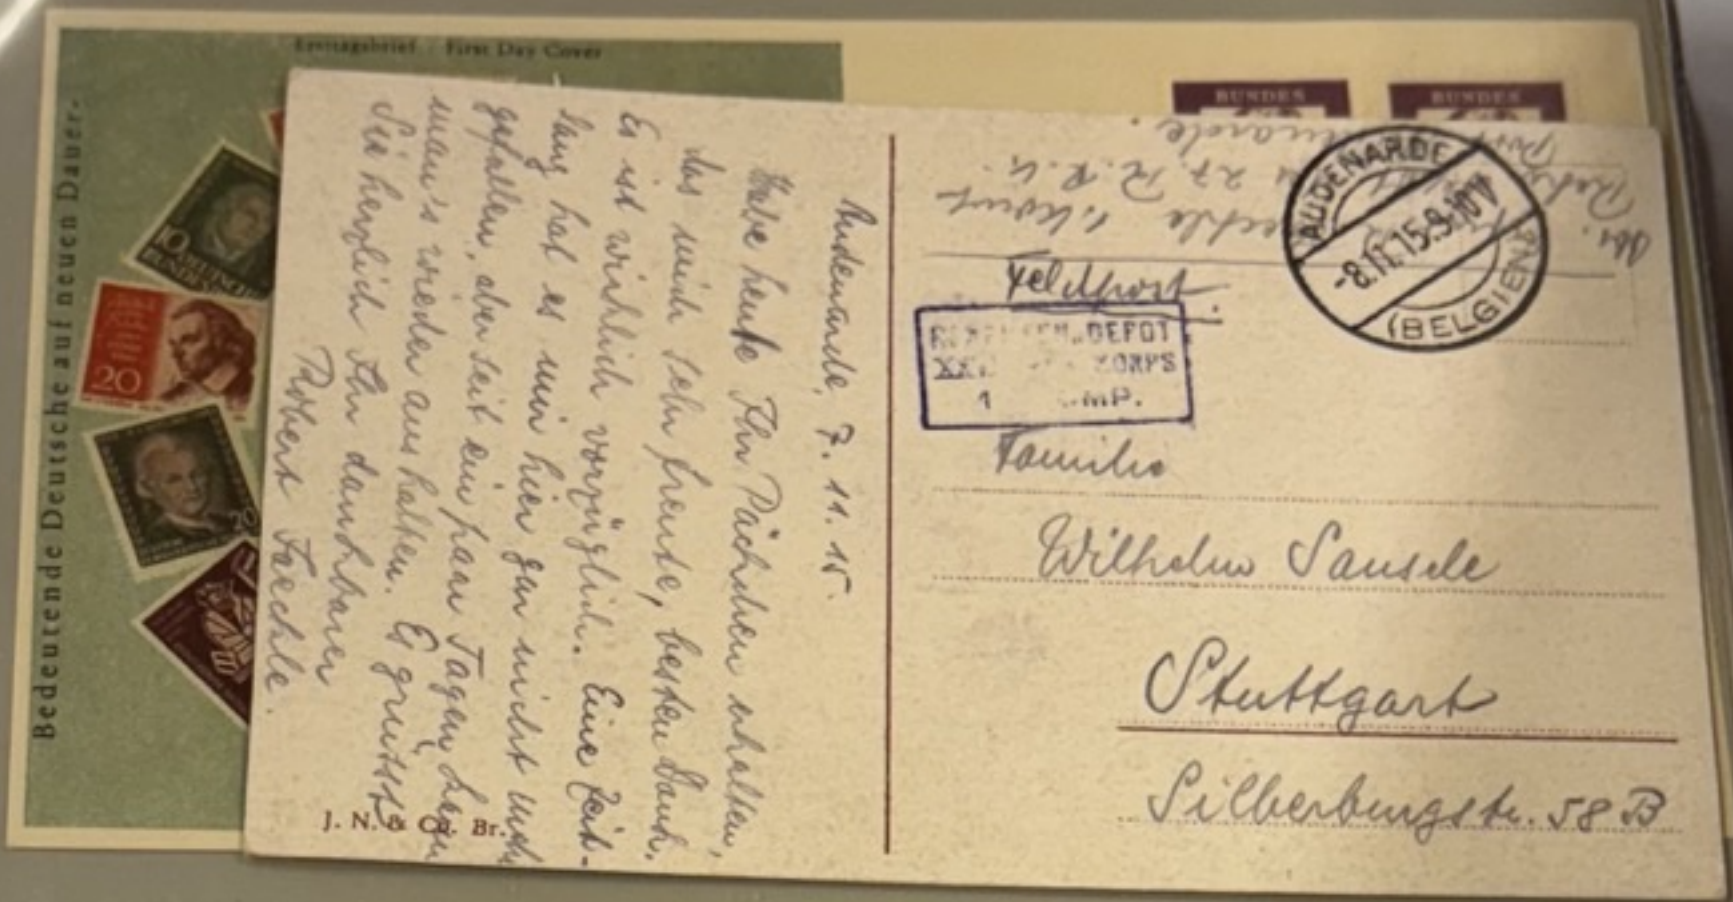 Ersttagsbrief · First Day Cover
Bedeutende Deutsche auf neuen Dauer-
BUNDES
BUNDES
10
20
20
Audenarde, 7. 11. 15.
Habe heute Ihr Päckchen erhalten,
das mich sehr freute, besten Dank.
Es ist wirklich vorzüglich. Eine Zeit-
lang hat es mir hier gar nicht mehr
gefallen, aber seit ein paar Tagen
man's wieder aushalten. Es grüsst
Sie herzlich Ihr dankbarer
Robert Faechle.
J. N. & Co. Br.
Abs.
27. R. K.
AUDENARDE
-8.11.15.9-10V
(BELGIEN)
Feldpost.
DEPOT
KORPS
1
Familie
Wilhelm Sausele
Stuttgart
Silberburgstr. 58 B